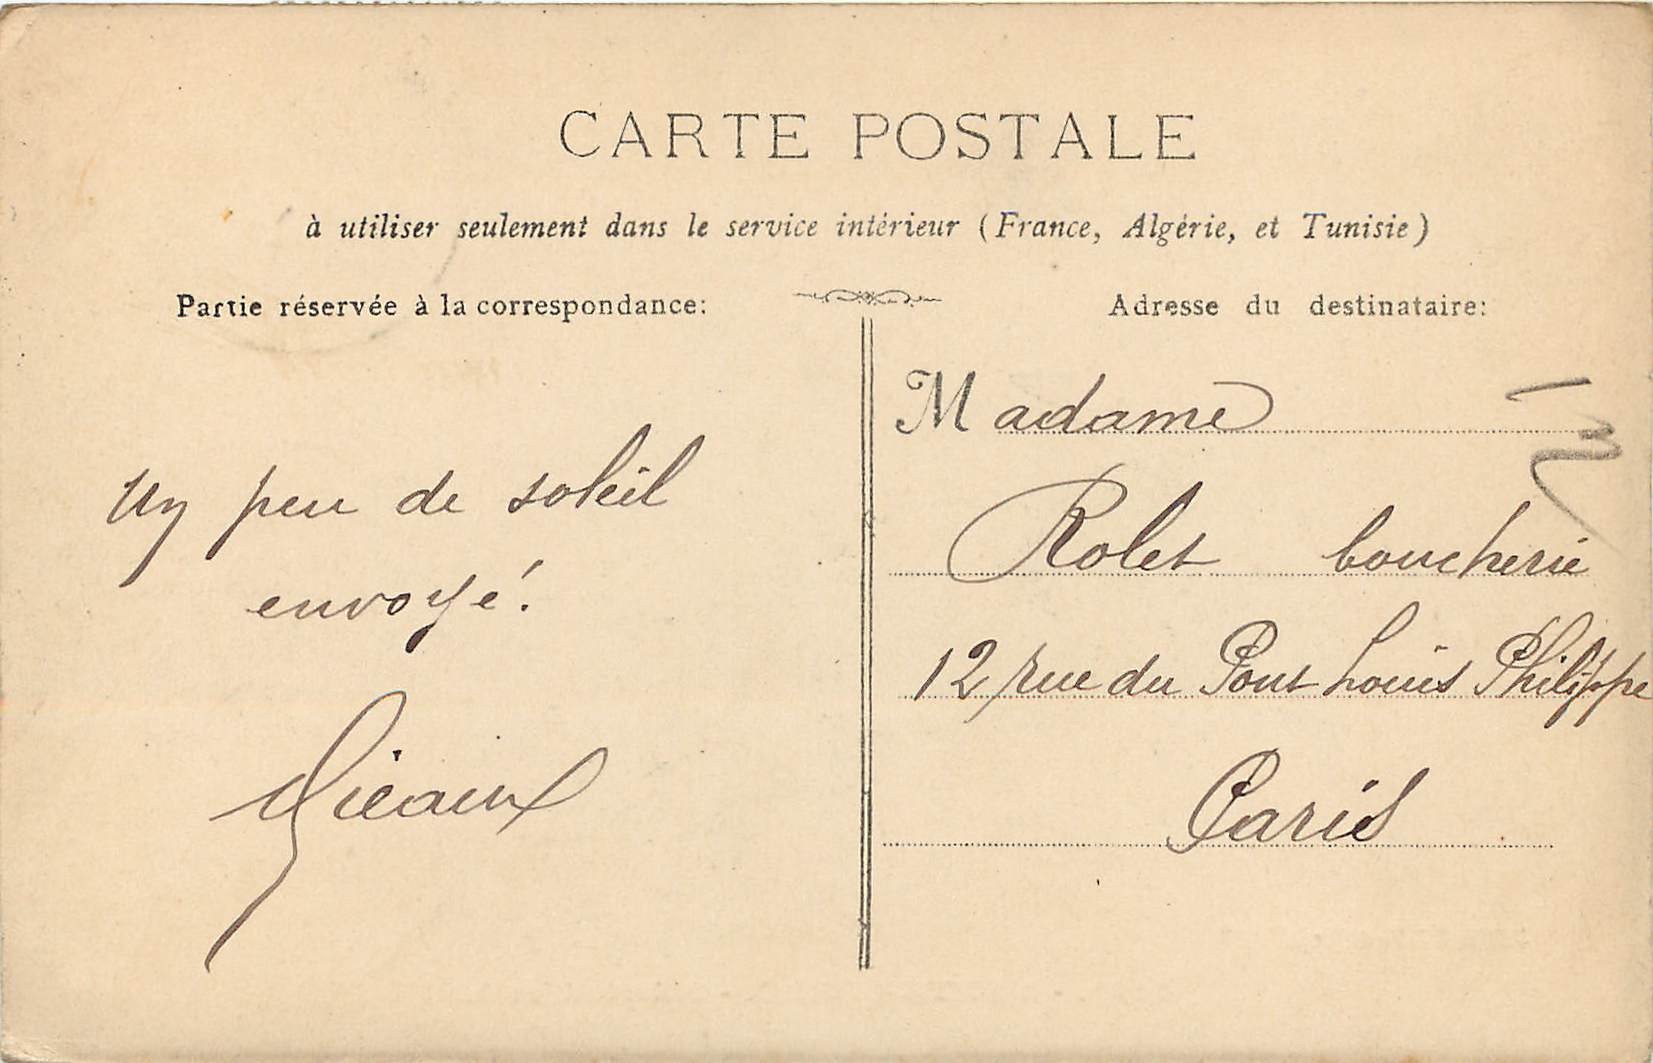 CARTE POSTALE
à utiliser seulement dans le service intérieur (France, Algérie, et Tunisie)
Partie réservée à la correspondance:
Un peu de soleil
envoyé!
Adresse du destinataire:
Madame
Rolet boucherie
12 rue du Pont Louis Philippe
Paris